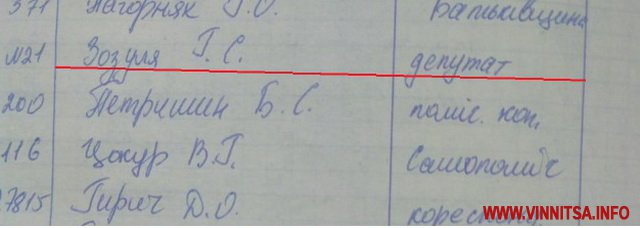 371 Нагорняк Г.О. Батьківщина
№21 Зозуля Г.С. депутат
200 Петришин Б.С. поліс. кон.
116 Цокур В.Г. Самопоміс
7815 Гирич Д.О. кореспон
WWW.VINNITSA.INFO